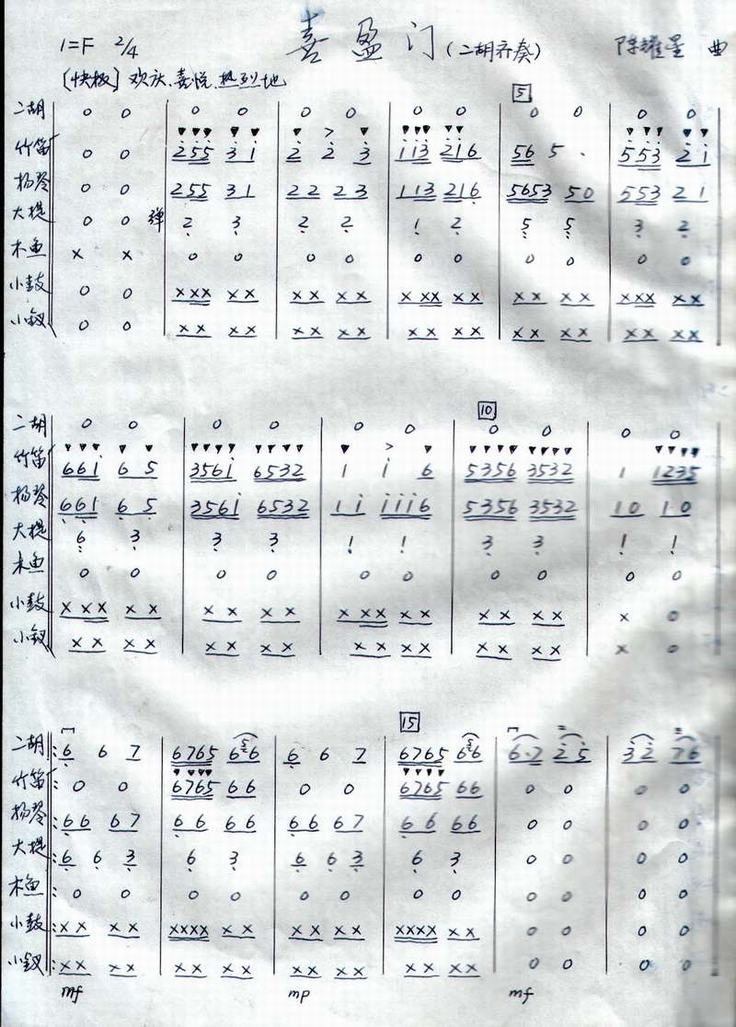 喜盈门(二胡齐奏)
1=F 2/4 陈耀星 曲
[快板] 欢庆、喜悦、热烈地
5
二胡 0 0 | 0 0 | 0 0 | 0 0 | 0 0 | 0 0
竹笛 0 0 | 255 31 | 2 2 3 | 113 216 | 56 5 · | 553 21
扬琴 0 0 | 255 31 | 22 23 | 113 216 | 5653 50 | 553 21
大提 0 0 弹 | 2 3 | 2 2 | 1 2 | 5 5 | 3 2
木鱼 x x | 0 0 | 0 0 | 0 0 | 0 0 | 0 0
小鼓 0 0 | xxx xx | xx xx | xxx xx | xx xx | xxx xx
小钗 0 0 | xx xx | xx xx | xx xx | xx xx | xx xx
10
二胡 0 0 | 0 0 | 0 0 | 0 0 | 0 0
竹笛 661 65 | 3561 6532 | 1 1 6 | 5356 3532 | 1 1235
扬琴 661 65 | 3561 6532 | 11 1116 | 5356 3532 | 10 10
大提 6 3 | 3 3 | 1 1 | 3 3 | 1 1
木鱼 0 0 | 0 0 | 0 0 | 0 0 | 0 0
小鼓 xxx xx | xx xx | xxx xx | xx xx | x 0
小钗 xx xx | xx xx | xx xx | xx xx | x 0
15
二胡 :6 6 7 | 6765 656 | 6 6 7 | 6765 656 | 6·2 25 | 32 76
竹笛 :0 0 | 6765 66 | 0 0 | 6765 66 | 0 0 | 0 0
扬琴 :66 67 | 66 66 | 66 67 | 66 66 | 0 0 | 0 0
大提 :6 6 3 | 6 3 | 6 6 3 | 6 3 | 0 0 | 0 0
木鱼 :0 0 | 0 0 | 0 0 | 0 0 | 0 0 | 0 0
小鼓 :xx xx | xxxx xx | xx xx | xxxx xx | 0 0 | 0 0
小钗 :xx xx | xx xx | xx xx | xx xx | 0 0 | 0 0
mf mp mf